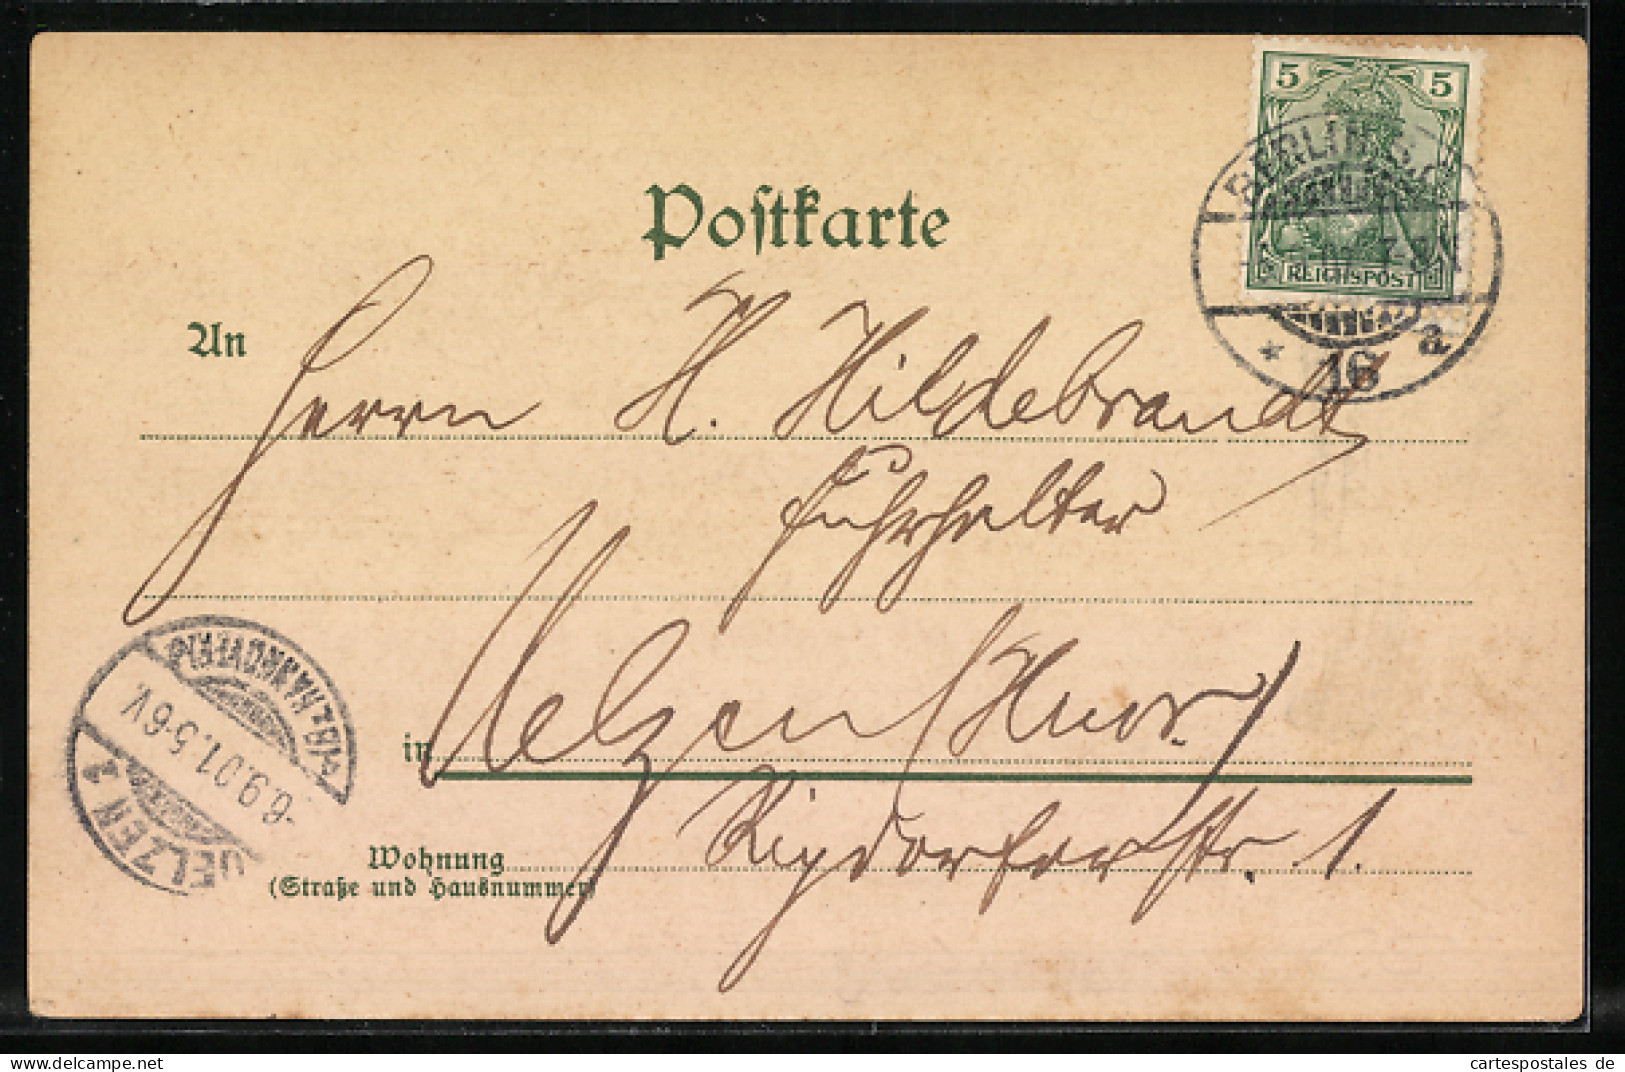 5 5
REICHSPOST
BERLIN S.O.
* 16 a
Postkarte
An
Herrn H. Hildebrandt
Fuhrhalter
in Uelzen (Hnov.)
Wohnung
(Straße und Hausnummer)
1.
UELZEN 1
-6.9.01.5-6V.
*(BZ.HANNOVER)a
delcampe.net
cartespostales de